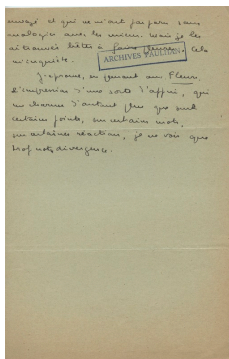 envoyé et qui ne m'ont pas paru sans
analogies avec les miens. Mais je les
ai trouvés bêtes à faire pleurer. Cela
m'inquiète.
ARCHIVES PAULHAN
J'éprouve, en pensant aux Fleurs,
l'impression d'une sorte d'appui, qui
me charme d'autant plus que sur
certains points, sur certains mots,
sur certaines réactions, je ne vois que
trop notre divergence.